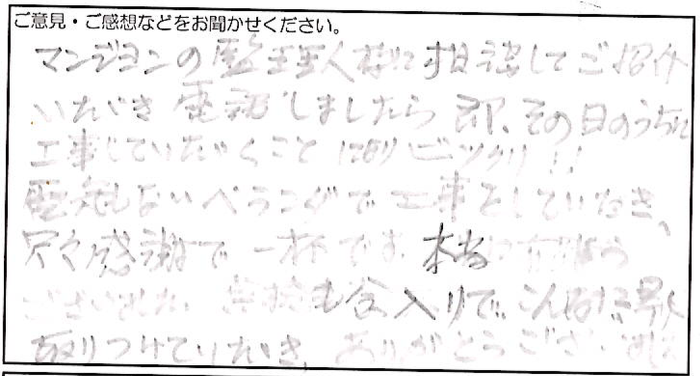 ご意見・ご感想などをお聞かせください。
マンションの管理人様に相談してご紹介
いただき 電話しましたら 即、その日のうちに
工事していただくことになりビックリ!!
しないベランダで工事をしていただき、
感謝で一杯です。本当に有難う
ございました。も念入りで こんなに早く
取りつけていただき、ありがとうございました